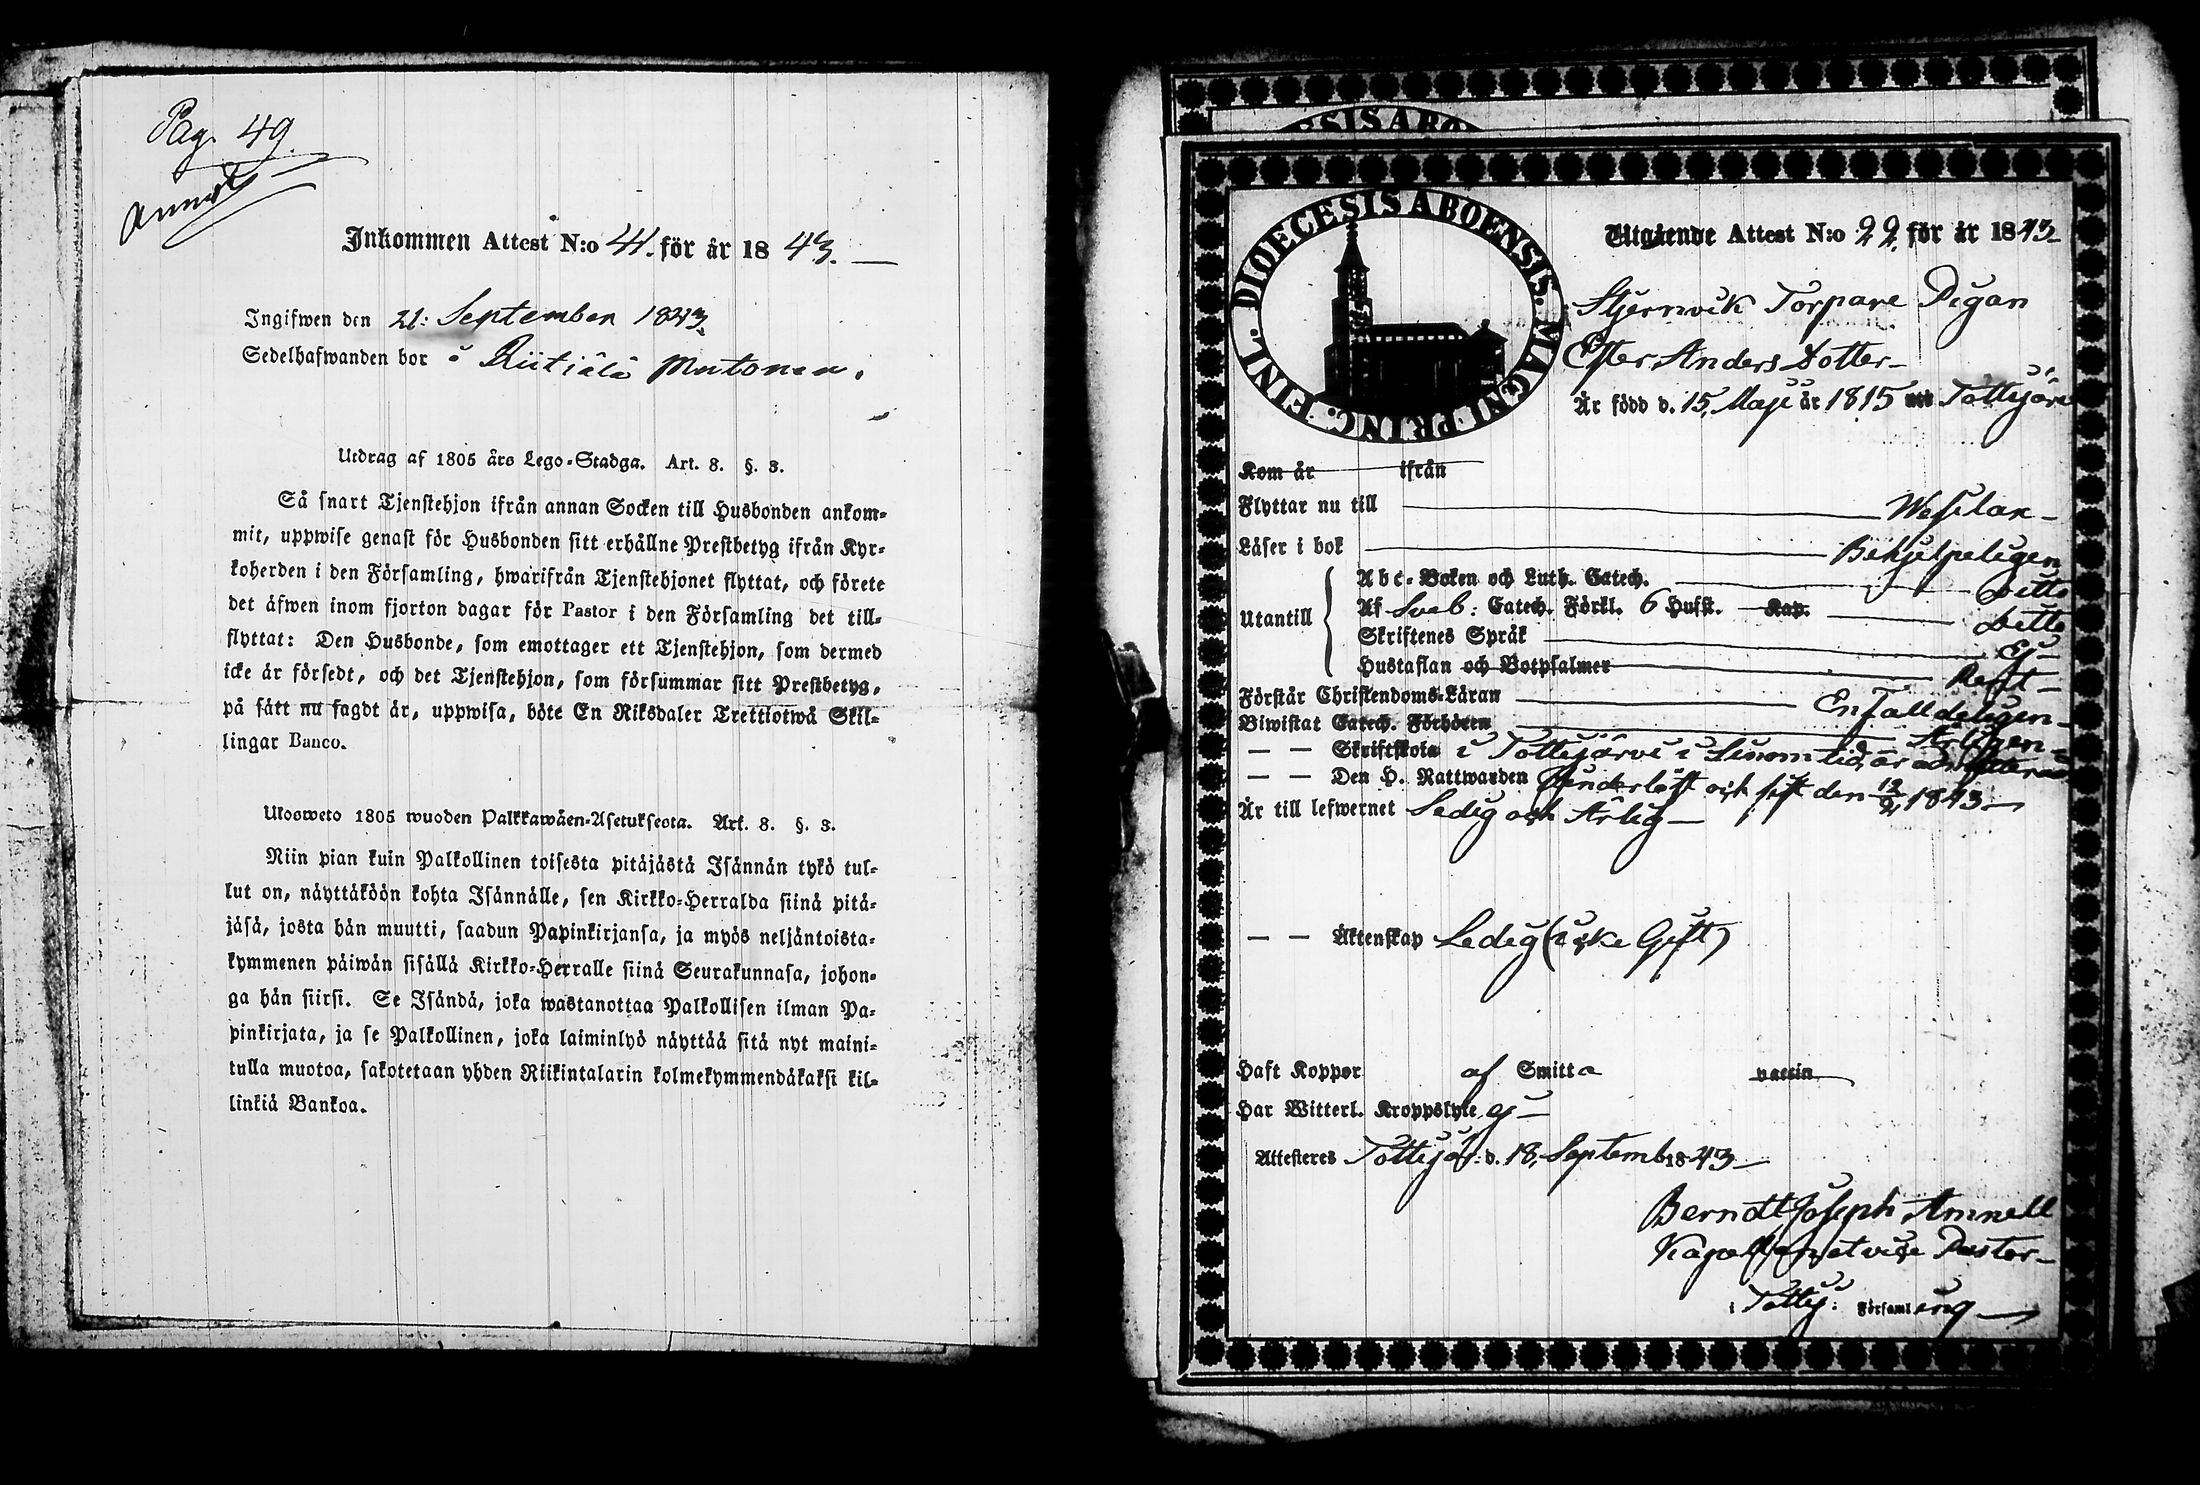 Pag. 49.
Annot
Inkommen Attest N:o 44. för år 1843.
Ingifwen den 21: September 1843.
Sedelhafwanden bor i Riitiälä Mutonen.
Utdrag af 1805 års Lego-Stadga. Art. 8. §. 3.
Så snart Tjenstehjon ifrån annan Socken till Husbonden ankom-
mit, uppwise genast för Husbonden sitt erhållne Prestbetyg ifrån Kyr-
koherden i den Församling, hwarifrån Tjenstehjonet flyttat, och förete
det äfwen inom fjorton dagar för Pastor i den Församling det till-
flyttat: Den Husbonde, som emottager ett Tjenstehjon, som dermed
icke är försedt, och det Tjenstehjon, som försummar sitt Prestbetyg,
på sätt nu sagdt är, uppwisa, böte En Riksdaler Trettiotwå Skil-
lingar Banco.
Ulosweto 1805 wuoden Palkkawäen-Asetuksesta. Art. 8. §. 3.
Niin pian kuin Palkollinen toisesta pitäjästä Isännän tykö tul-
lut on, näyttäköön kohta Isännälle, sen Kirkko-Herralda siinä pitä-
jäsä, josta hän muutti, saadun Papinkirjansa, ja myös neljäntoista-
kymmenen päiwän sisällä Kirkko-Herralle siinä Seurakunnasa, johon-
ga hän siirsi. Se Isändä, joka wastanottaa Palkollisen ilman Pa-
pinkirjata, ja se Palkollinen, joka laiminlyö näyttää sitä nyt maini-
tulla muotoa, sakotetaan yhden Riikintalarin kolmekymmendäkaksi kil-
linkiä Bankoa.
DIOECESIS ABO
DIOECESIS ABOENSIS. MAGNI PRINC. FINL.
Utgående Attest N:o 22. för år 1843
Stjernvik Torpare Pigan
Ester Anders Dotter
Är född d. 15. Maji år 1815 uti Tottijärvi
Kom år ifrån
Flyttar nu till Wesilax
Läser i bok Behjelpeligen
Utantill
Abc-Boken och Luth. Catech. Ditto
Af Sveb: Catech. Förkl. 6 Hufst. Kap. Ditto
Skriftenes Språk Ej
Hustaflan och Botpsalmer
Förstår Christendoms-Läran Enfalldeligen
Biwistat Catech. Förhören Årligen
— — Skriftskola i Tottijärvi i sinom tid, är admitterad
— — Den H. Nattwarden och sist den 12/9 1843
Är till lefwernet Ledig och Ärlig
— — Äktenskap Ledig (icke Gift)
Haft Koppor af Smitta vaccin
Har Witterl. Kroppslyte ej
Attesteres Tottijär: d. 18. Septemb 1843
Berndt Joseph Amnell
Kapellan et vice Pastor
i Tottij: Församling